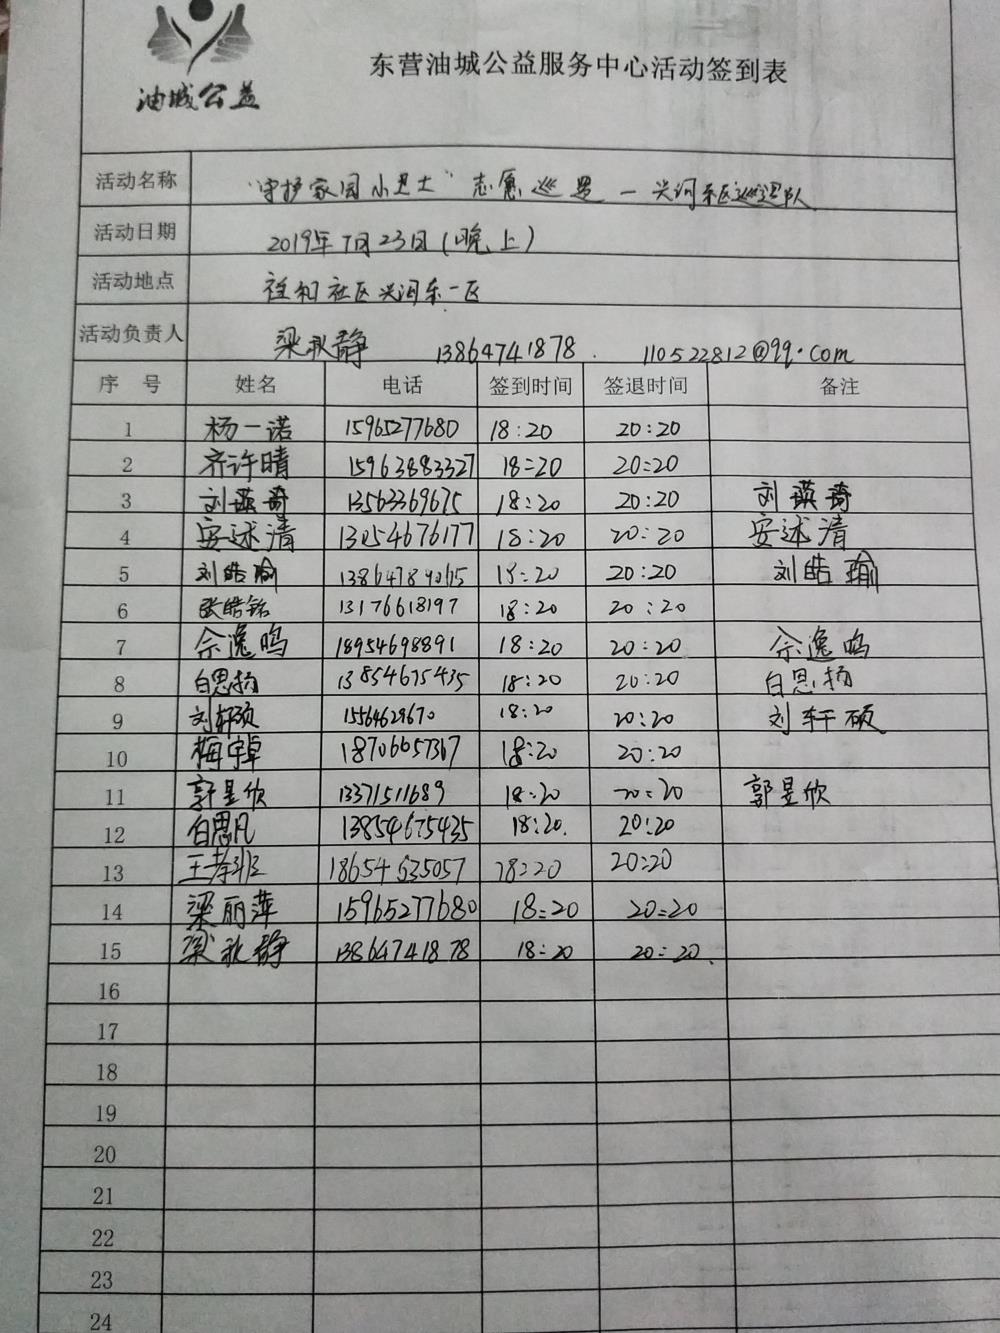 油城公益
东营油城公益服务中心活动签到表
活动名称 "守护家园小卫士"志愿巡逻—兴河东区巡逻队
活动日期 2019年7月23日(晚上)
活动地点 社区兴河东一区
活动负责人 梁秋静 13864741878. 110522812@qq.com
序号 姓名 电话 签到时间 签退时间 备注
1 杨一诺 15965277680 18:20 20:20
2 齐许晴 15963883327 18:20 20:20
3 刘瑛琦 13563369675 18:20 20:20 刘瑛琦
4 安述清 13054676177 18:20 20:20 安述清
5 刘皓瑜 13864789065 18:20 20:20 刘皓瑜
6 张皓铭 13176618197 18:20 20:20
7 佘逸鸣 18954698891 18:20 20:20 佘逸鸣
8 白思扬 13854675435 18:20 20:20 白思扬
9 刘轩硕 15564629670 18:20 20:20 刘轩硕
10 梅宇卓 18706657367 18:20 20:20
11 郭昱欣 13371511689 18:20 20:20 郭昱欣
12 白思凡 13854675435 18:20. 20:20
13 王孝 18654635057 18:20 20:20
14 梁丽萍 15965277680 18:20 20:20
15 梁秋静 13864741878 18:20 20:20.
16
17
18
19
20
21
22
23
24